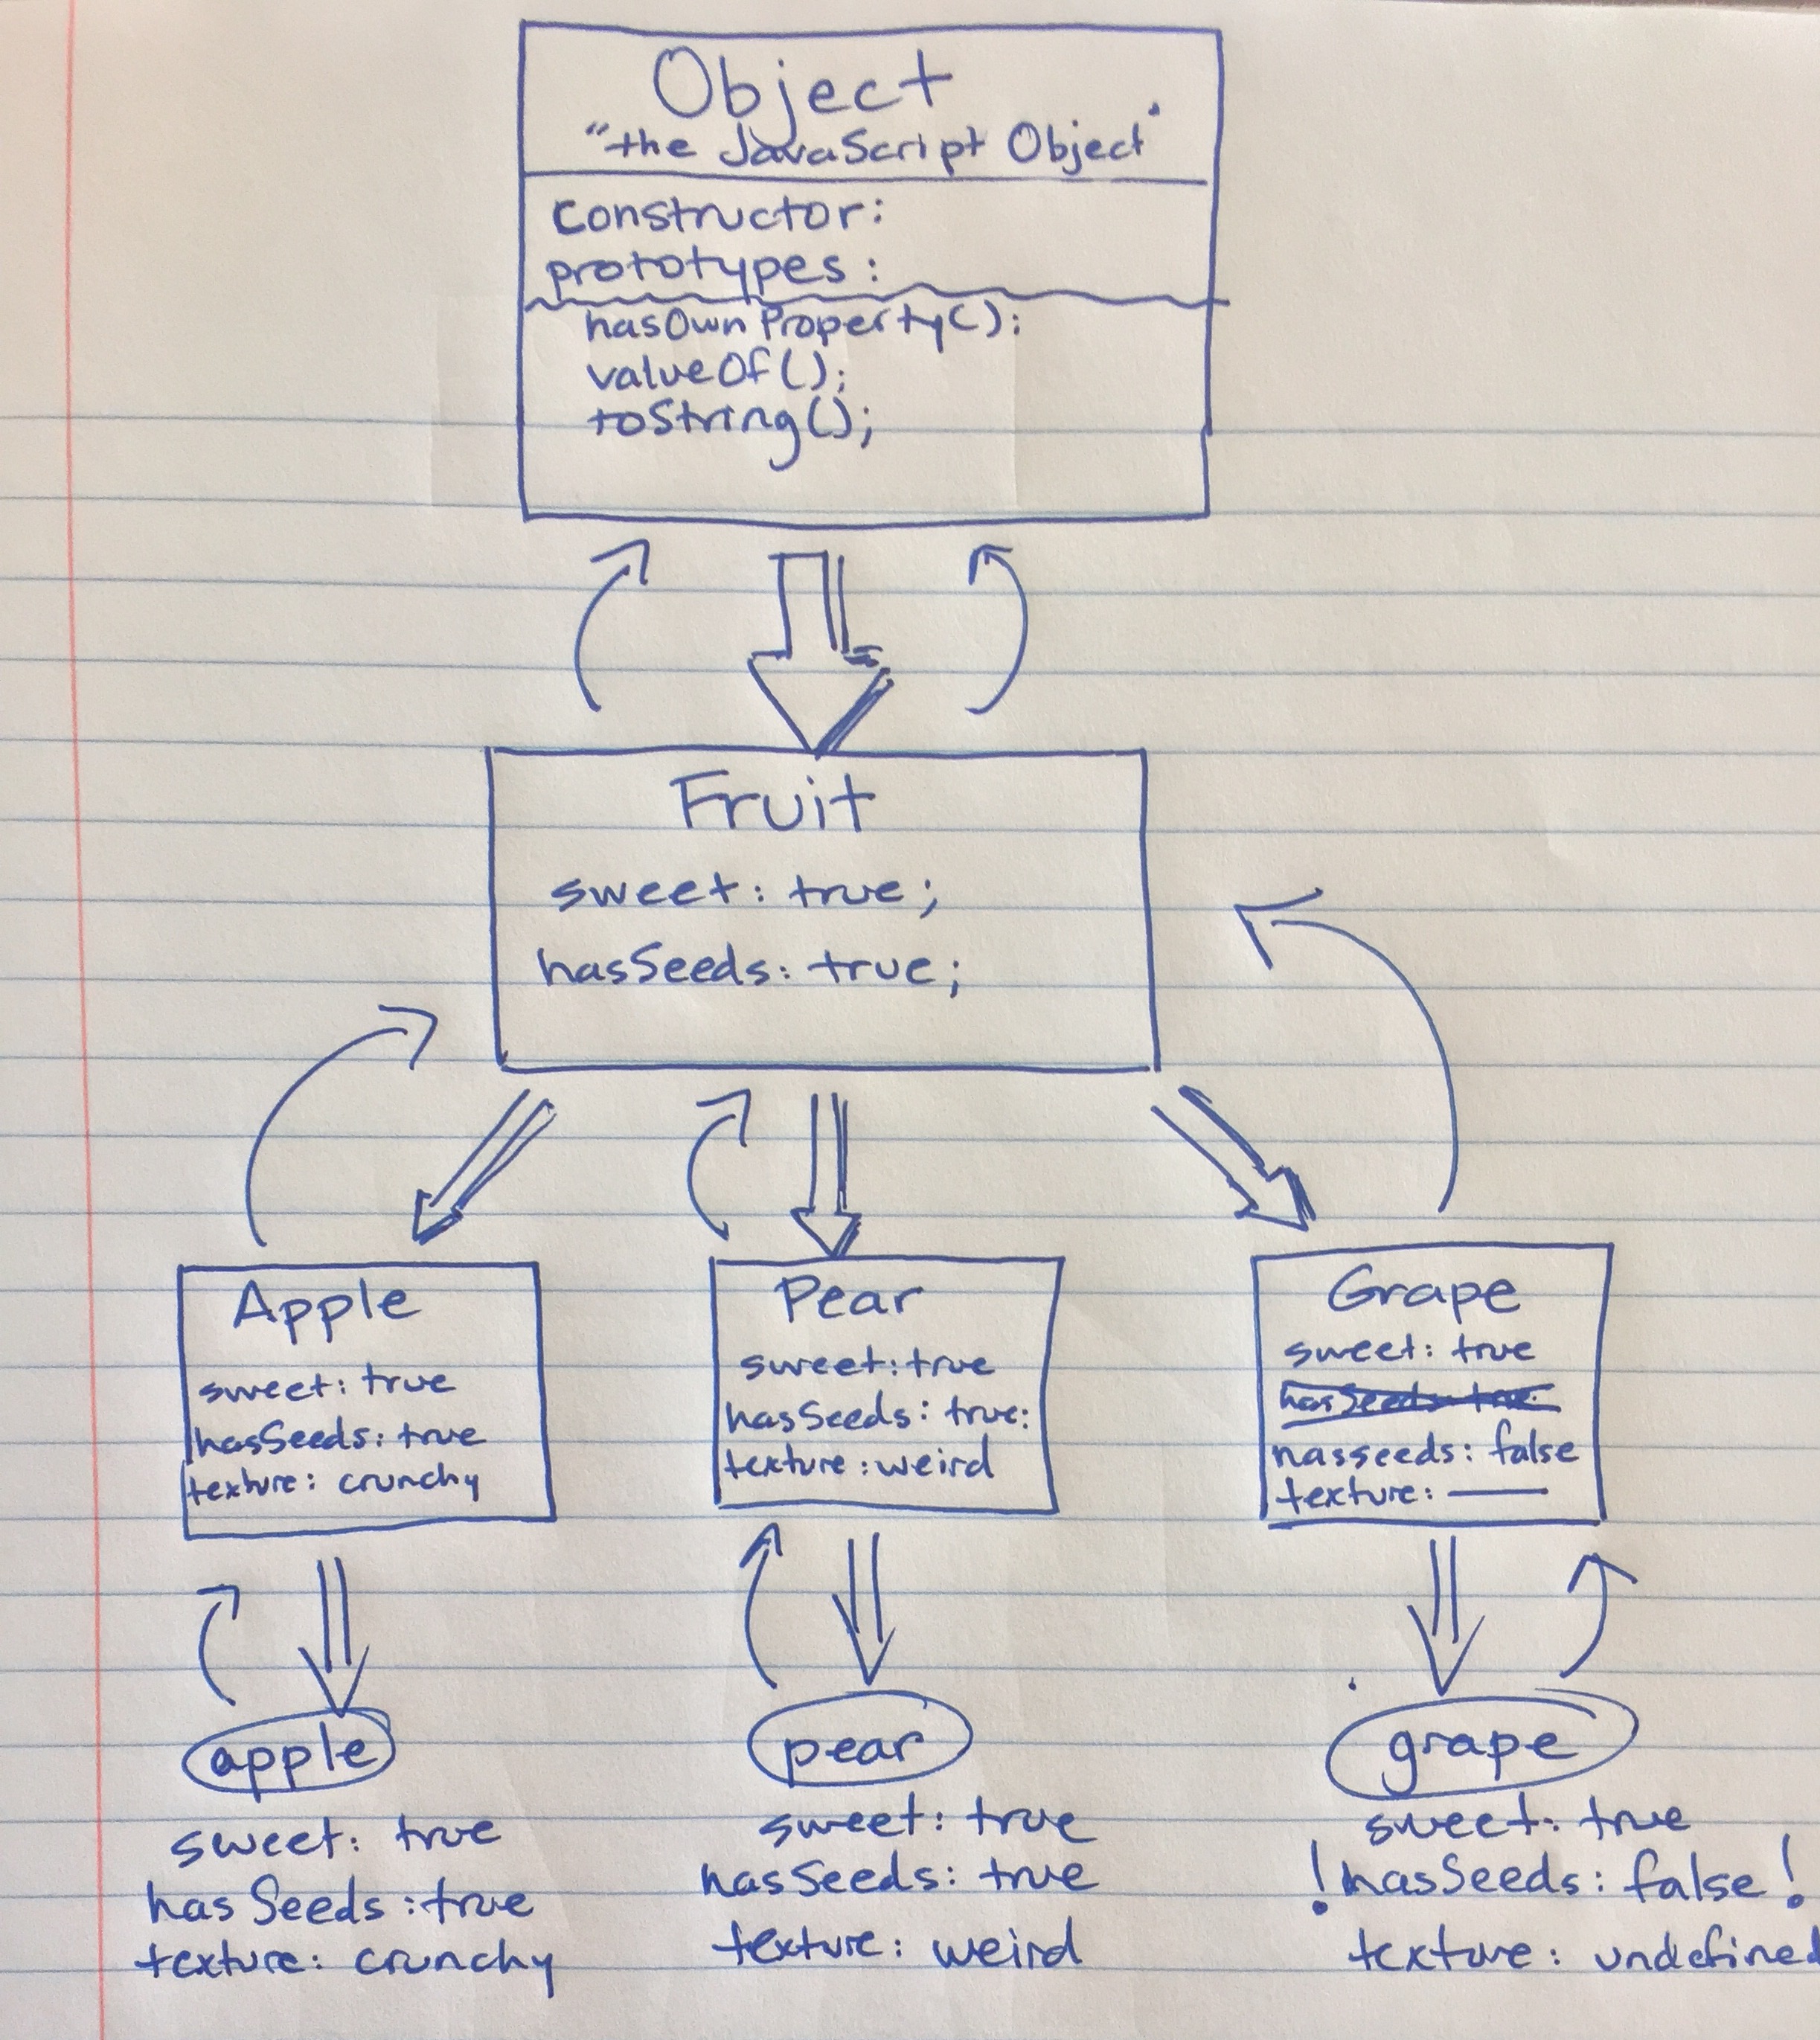 Object
"the JavaScript Object"
constructor:
prototypes:
hasOwnProperty();
valueOf();
toString();
Fruit
sweet: true;
hasSeeds: true;
Apple
sweet: true
hasSeeds: true
texture: crunchy
Pear
sweet: true
hasSeeds: true:
texture: weird
Grape
sweet: true
hasSeeds: true
hasseeds: false
texture: ——
apple
sweet: true
hasSeeds: true
texture: crunchy
pear
sweet: true
hasSeeds: true
texture: weird
grape
sweet: true
! hasSeeds: false !
texture: undefined